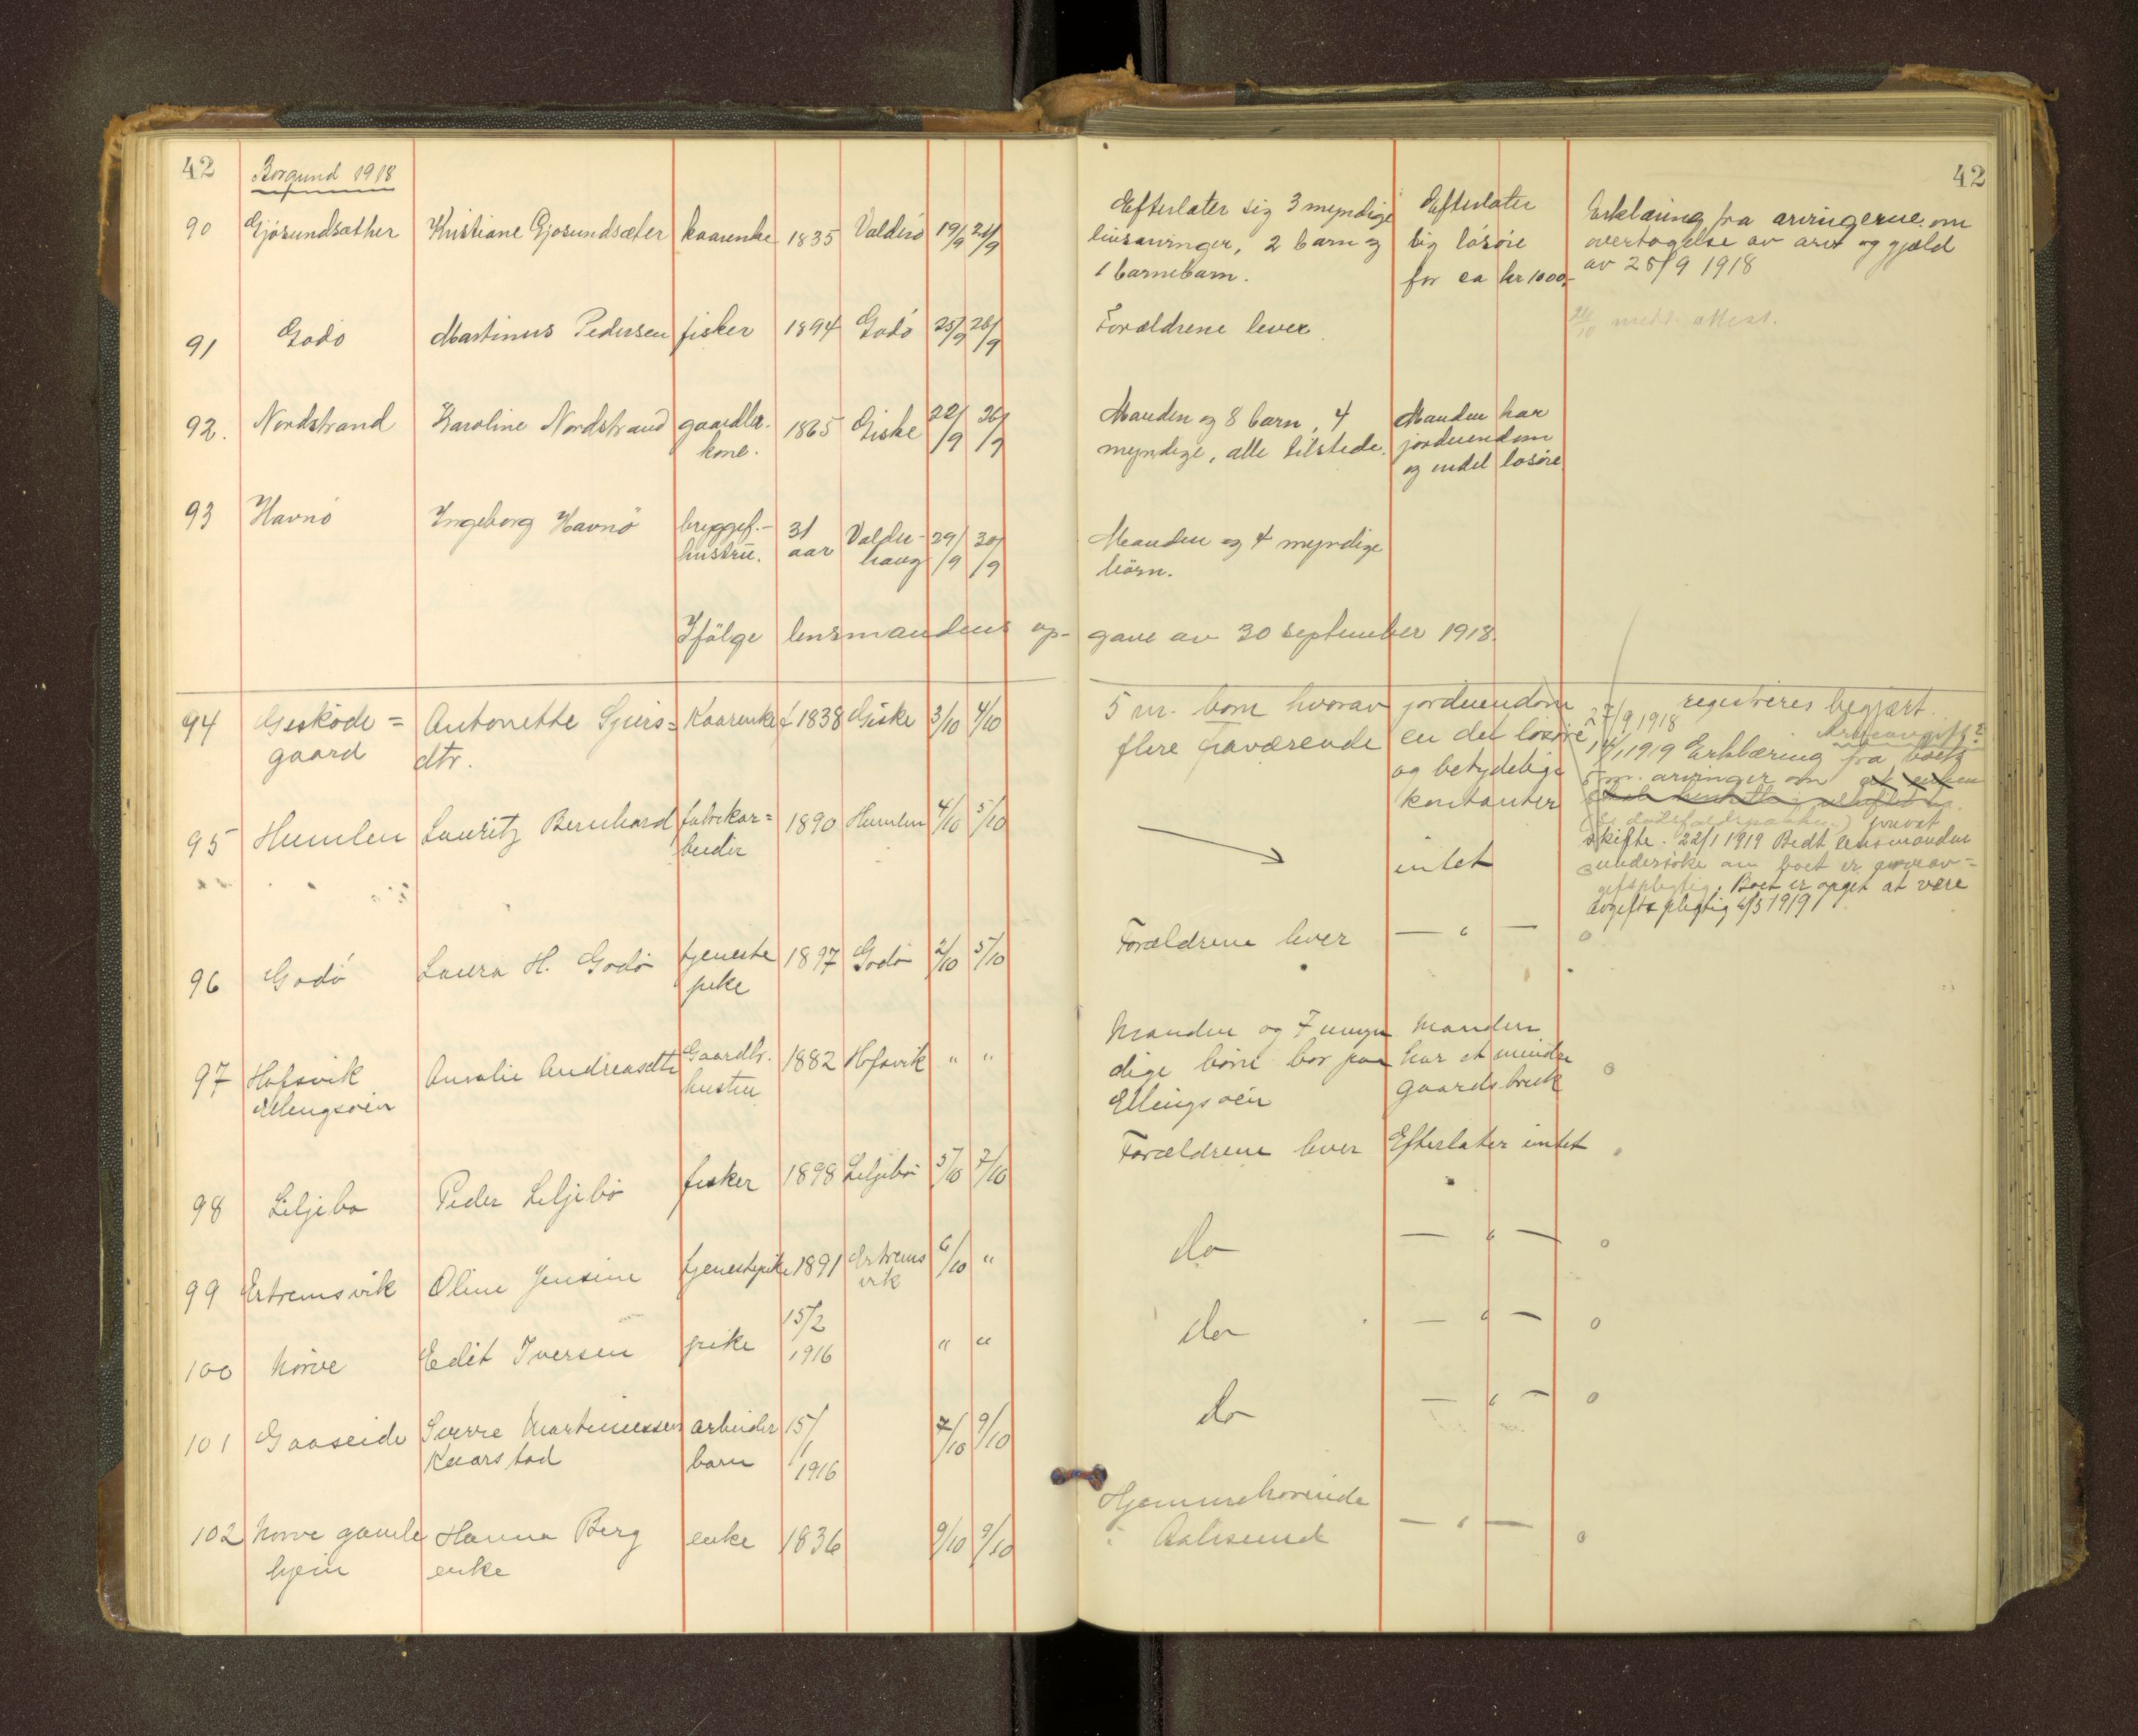 42
Borgund 1918
42
90 Gjøsundsæther Kristiane Gjøsundsæter kaarenke 1835 Valderø 19/9 21/9 Efterlater sig 3 myndige Efterlater Erklæring fra arvingerne om
livsarvinger, 2 barn og sig løsøre overtagelse av arv og gjæld
1 barnebarn. for ca kr 1000,- av 25/9 1918
91 Godø Martinus Pedersen fisker 1894 Godø 25/9 28/9 Forældrene lever
26/10 medd. attest.
92. Nordstrand Karoline Nordstrand gaardbr. 1865 Giske 22/9 26/9 Manden og 8 barn, 4 Manden har
kone. myndige, alle tilstede. jordeiendom
og endel løsøre
93 Havnø Ingeborg Havnö bryggef.- 31 Valder- 29/9 30/9 Manden og 4 myndige
hustru. aar haug börn.
Ifölge lensmandens op- gave av 30 september 1918.
94 Geskøde= Antonette Sjurs= Kaarenke f 1838 Giske 3/10 4/10 5 m. born hvorav jordeiendom 27/9 1918 registreres begjært.
gaard dtr. flere fraværende en del løsøre Arveavgift?
og betydelige 14/1 1919 Erklæring fra boets
kontanter 5 m. arvinger om
privat
95 Humlen Lauritz Bernhard fabrikar= 1890 Humlen 4/10 5/10 intet skifte. 22/1 1919 Bedt lensmanden
beider undersøke om boet er arveav=
giftspligtig. Boet er opget at være
avgiftspligtig 4/3 1919
96 Godø Laura H. Godø tjeneste 1897 Godø 2/10 5/10 Forældrene lever — " — o
pike
97 Hofsvik Amalie Andreasdtr Gaardbr. 1882 Hofsvik " " Manden og 7 umyn Manden
Ellingsøen hustru dige børn bor paa har et mindre o
Ellingsøen gaardsbruk
98 Liljebø Peder Liljebø fisker 1898 Liljebø 5/10 7/10 Forældrene lever Efterlater intet
99 Ertremsvik Oline Jensine tjenestepike 1891 Ertrems 6/10 " do — " — o
vik
100 Nørve Edit Iversen pike 15/2 " " do — " — o
1916
101 Gaaseide Sverre Martinussen arbeider 15/1 7/10 9/10 do — " — o
Kaarstad barn 1916
102 Nørve gamle Hanna Berg enke 1836 9/10 9/10 Hjemmehørende — " — o
hjem enke i Aalesund